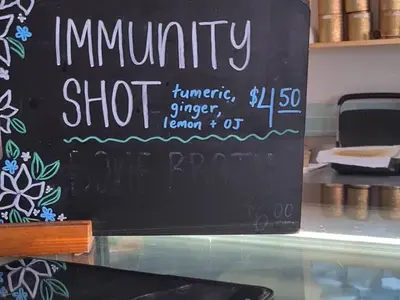 IMMUNITY
SHOT tumeric, $4.50
ginger,
lemon + OJ
BONE BROTH
6.00